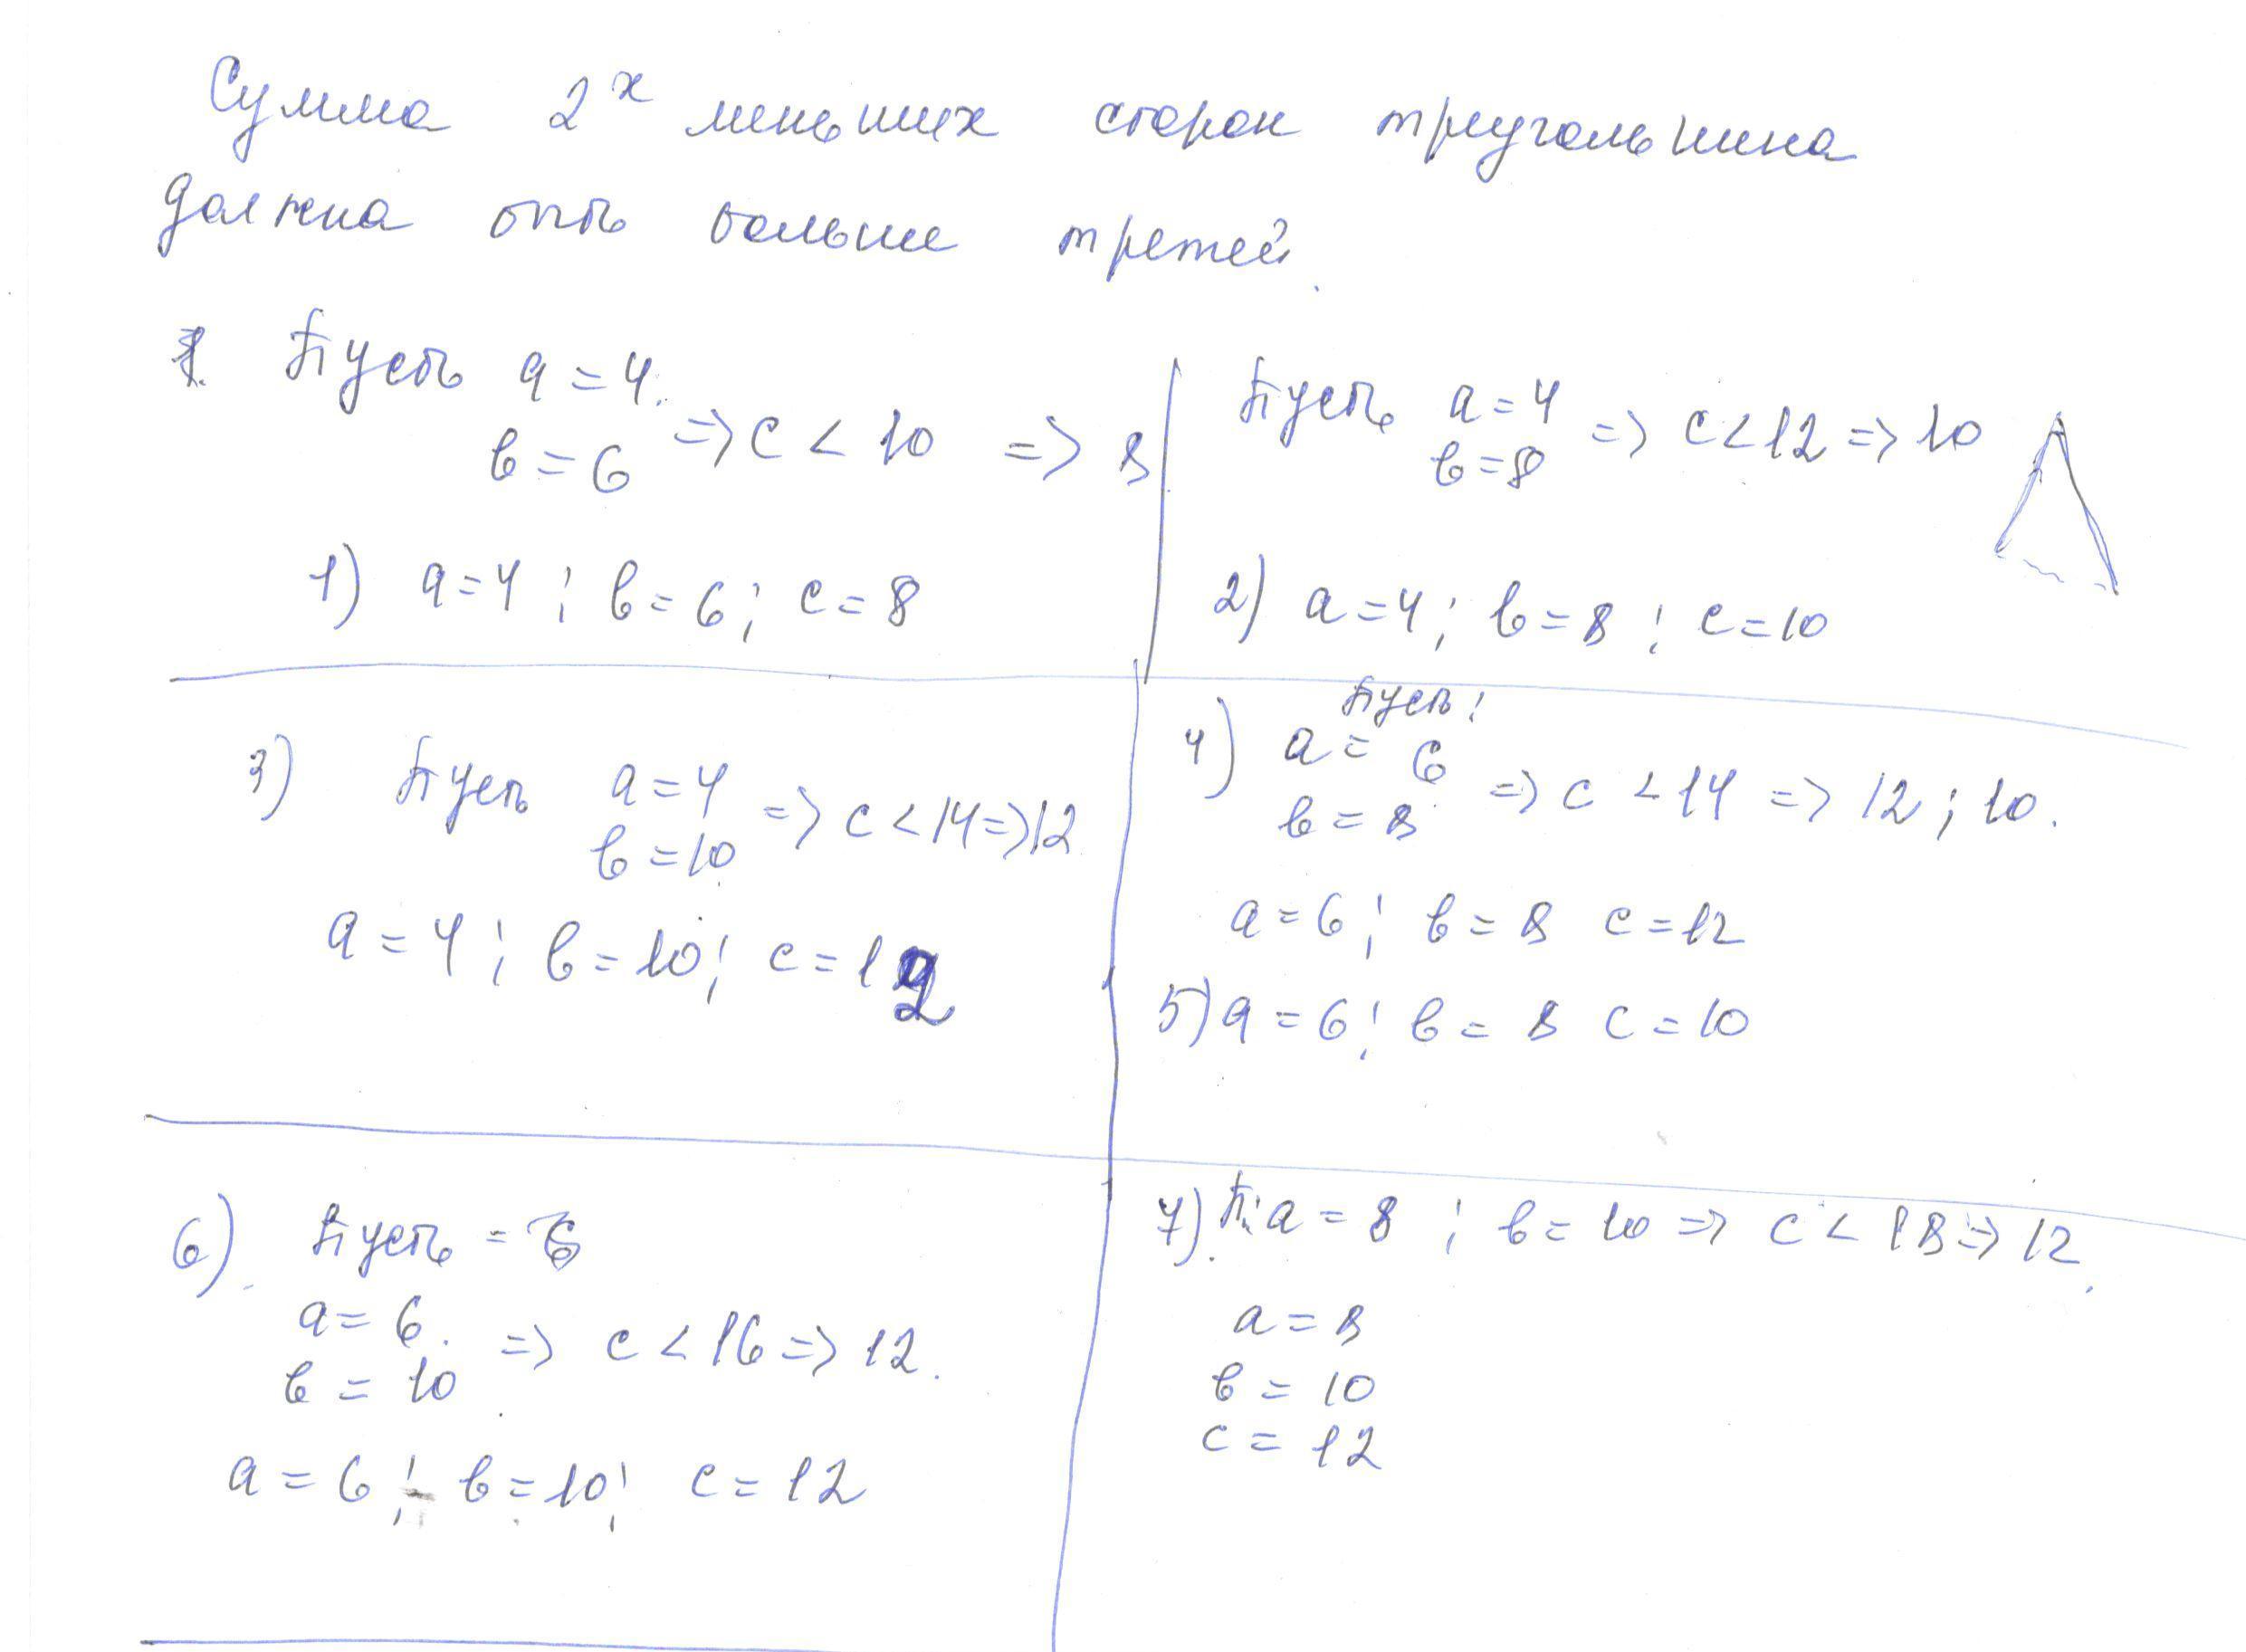 Сумма 2х меньших сторон треугольника
должна быть больше третей.
1. Пусть a = 4.
в = 6 => c < 10 => 8
1) a = 4; в = 6; c = 8
Пусть a = 4
в = 8 => c < 12 => 10
2) a = 4; в = 8; c = 10
3) Пусть a = 4
в = 10 => c < 14 => 12
a = 4; в = 10; c = 12
Пусть:
4) a = 6
в = 8 => c < 14 => 12; 10.
a = 6; в = 8 c = 12
5) a = 6; в = 8 c = 10
6) Пусть = 6
a = 6.
в = 10 => c < 16 => 12.
a = 6; в = 10; c = 12
7) П: a = 8; в = 10 => c < 18 => 12.
a = 8
в = 10
c = 12